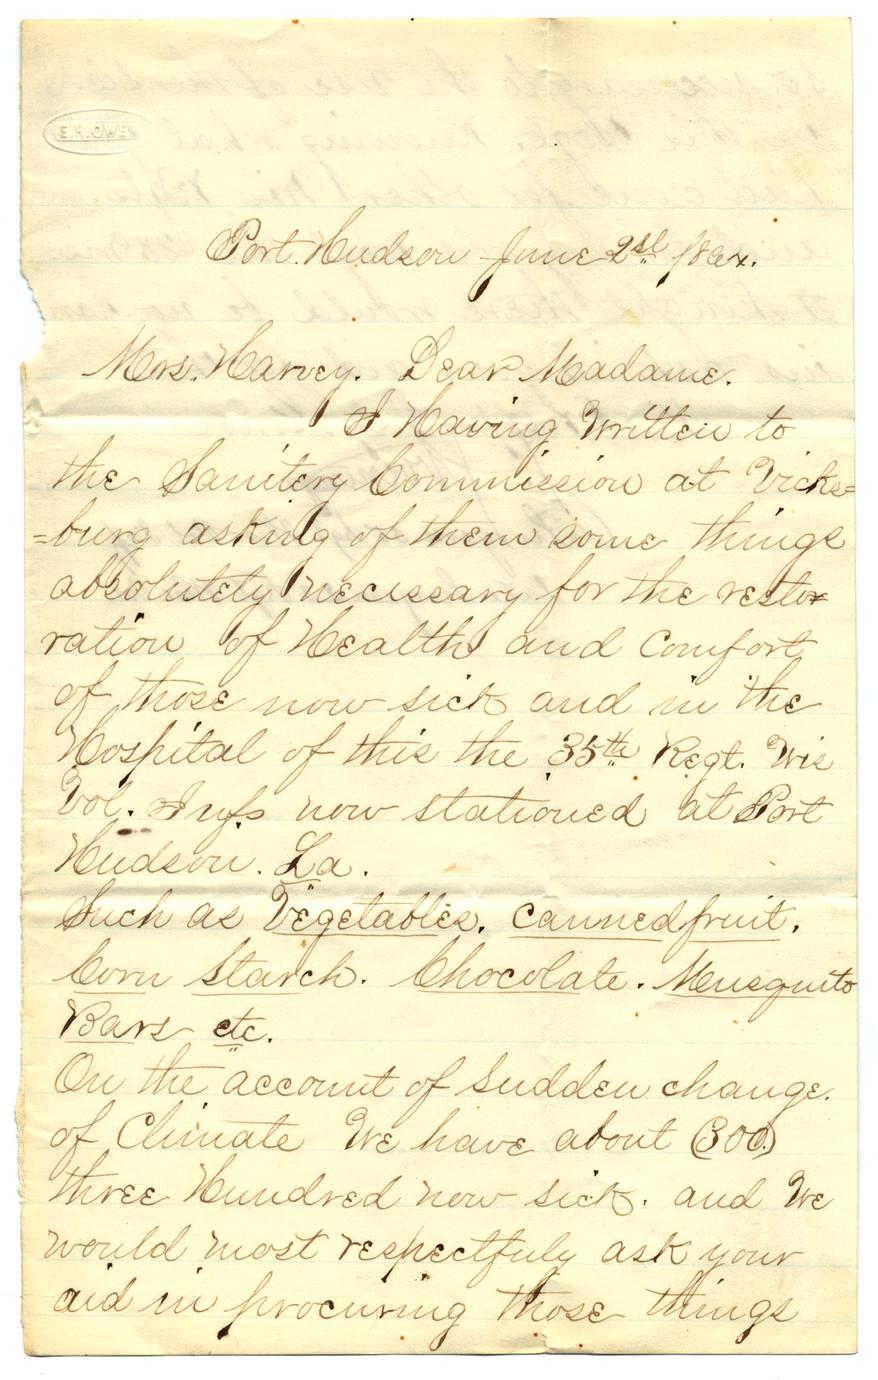 E.H.OWEN
Port. Hudson June 2st 1864.
Mrs. Harvey. Dear Madame.
I Having Written to
the Sanitery Commission at Vicks=
=burg asking of them some things
absolutely necessary for the resto=
ration of Health and Comfort
of those now sick and in the
Hospital of this the 35th Regt. Wis
Vol. Inf. now stationed at Port
Hudson. La.
Such as Vegetables. canned fruit.
Corn Starch. Chocolate. Musquito
Bars etc.
On the account of sudden change.
of Climate We have about (300)
three Hundred now sick. and We
would most respectfuly ask your
aid in procuring those things